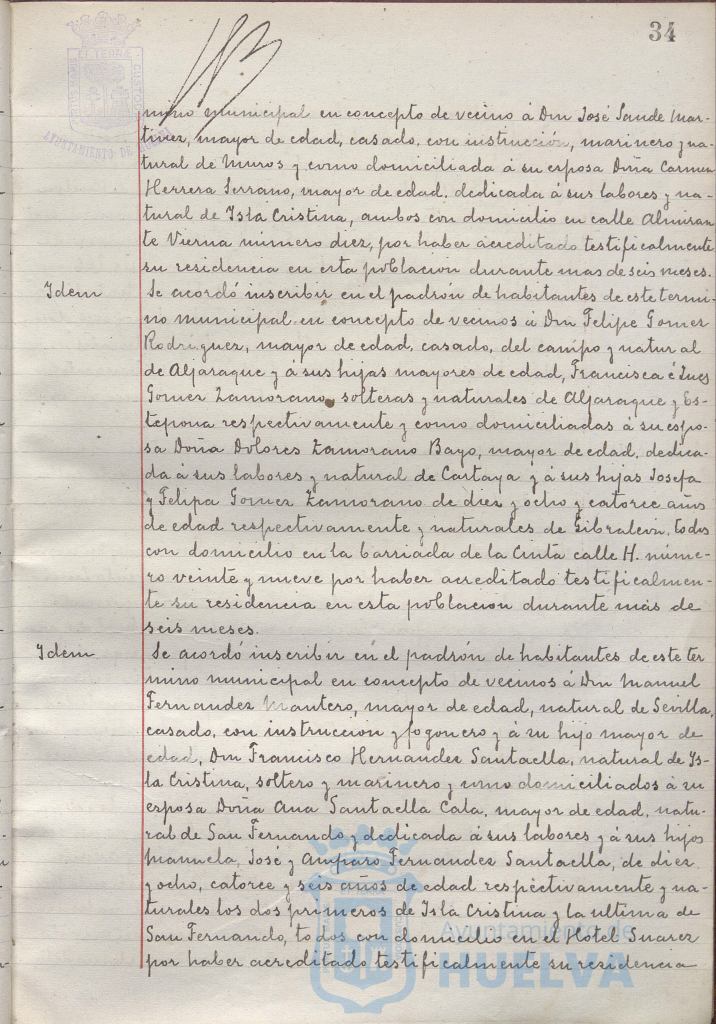 34
mino municipal en concepto de vecino á Don José Sande Mar-
tinez, mayor de edad, casado, con instrucción, marinero y na-
tural de Muros y como domiciliada á su esposa Doña Carmen
Herrera Serrano, mayor de edad, dedicada á sus labores y na-
tural de Isla Cristina, ambos con domicilio en calle Almiran
te Vierna número diez, por haber acreditado testificalmente
su residencia en esta poblacion durante mas de seis meses.
Idem
Se acordó inscribir en el padrón de habitantes de este termi-
no municipal en concepto de vecinos á Don Felipe Gomez
Rodriguez, mayor de edad, casado, del campo y natural
de Aljaraque y á sus hijas mayores de edad, Francisca é Ines
Gomez Zamorano, solteras y naturales de Aljaraque y Es-
tepona respectivamente y como domiciliadas á su espo-
sa Doña Dolores Zamorano Bayo, mayor de edad, dedica-
da á sus labores y natural de Cartaya y á sus hijas Josefa
y Felipa Gomez Zamorano de diez y ocho y catorce años
de edad respectivamente y naturales de Gibraleon, todos
con domicilio en la barriada de la Cinta calle H. núme-
ro veinte y nueve por haber acreditado testificalmen-
te su residencia en esta poblacion durante más de
seis meses.
Idem
Se acordó inscribir en el padrón de habitantes de este ter
mino municipal en concepto de vecinos á Don Manuel
Fernandez Mantero, mayor de edad, natural de Sevilla,
casado, con instruccion y fogonero y á su hijo mayor de
edad, Don Francisco Hernandez Santaella, natural de Is-
la Cristina, soltero y marinero y como domiciliados á su
esposa Doña Ana Santaella Cala, mayor de edad, natu-
ral de San Fernando y dedicada á sus labores y á sus hijos
Manuela, José y Amparo Fernandez Santaella, de diez
y ocho, catorce y seis años de edad respectivamente y na-
turales los dos primeros de Isla Cristina y la ultima de
San Fernando, todos con domicilio en el Hotel Suarez
por haber acreditado testificalmente su residencia
Ayuntamiento de
HUELVA